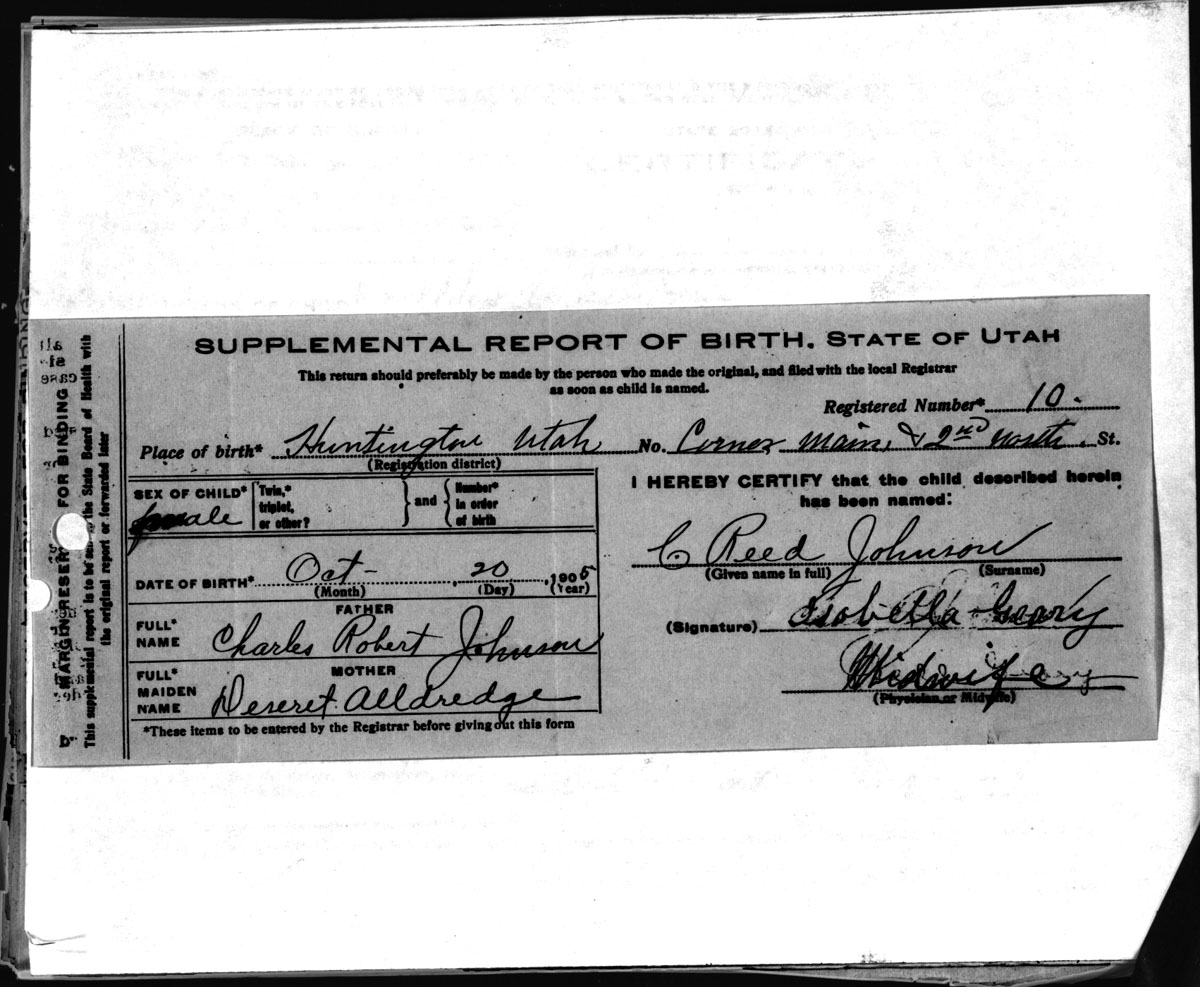 SUPPLEMENTAL REPORT OF BIRTH. STATE OF UTAH
This return should preferably be made by the person who made the original, and filed with the local Registrar
as soon as child is named.
Registered Number* 10.
Place of birth* Huntington Utah No. Corner Main & 2nd North. St.
(Registration district)
SEX OF CHILD* male
Twin,* triplet, or other? } and { Number* in order of birth
DATE OF BIRTH* Oct - 20, 1905
(Month) (Day) (Year)
FATHER
FULL* NAME Charles Robert Johnson
MOTHER
FULL* MAIDEN NAME Deseret Alldredge
*These items to be entered by the Registrar before giving out this form
I HEREBY CERTIFY that the child described herein
has been named:
C Reed Johnson
(Given name in full) (Surname)
(Signature) Isobella Geary
Midwife
(Physician or Midwife)
MARGIN RESER FOR BINDING
This supplemental report is to be the State Board of Health with
the original report or forwarded later